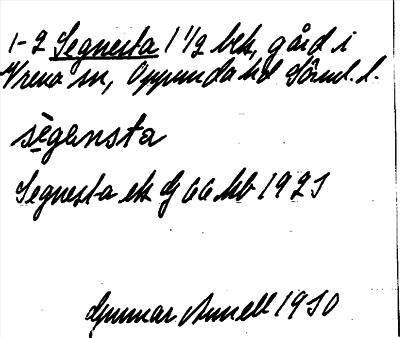 1-2 Segnesta 1 1/2 hek, gård i
Vrena sn, Oppunda hd Sörml. l.
sègənsta
Segnesta ek bl 66 Nb 1921
Gunnar Amell 1930